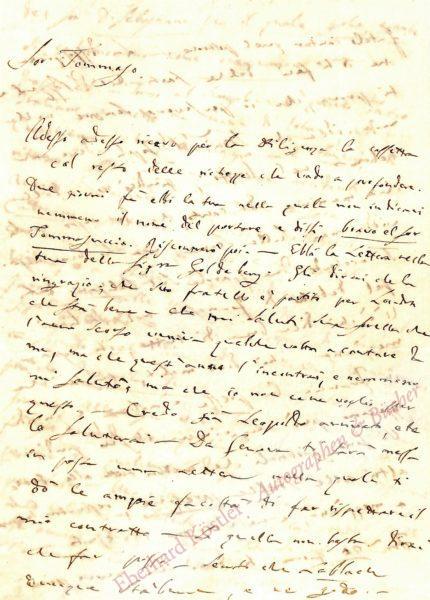 Sor Tommaso.
Adesso adesso ricevo per la Diligenza la cassetta
col resto delle richezze che vado a profondere.
Due giorni fà ebbi la tua nella quale non indicavi
nemmeno il nome del portore, e dissi, bravo el sor
Tommasuccio. Discorremo poi. — Ebbi la Lettera nella
tua della Sigra Goldeberg. Gli dirai che la
ringrazio, che suo fratello è partito per
che stà bene — che mi saluti sua sorella che
l'anno scorso veniva qualche volta a cantare da
me, ma che quest'anno l'incontrai, e nemmeno
mi salutò, ma che io non ce ne voglio per
questo. — Credo già Leopoldo arrivato, e te
lo saluterai — Da Genova ti sarà messa
in posta una lettera nella quale ti
dò le ampie facoltà di far rispettare il
mio contratto — quella non basta dirai
che far — Sento che Lablache
e ne godo. —
Eberhard Köstler · Autographen & Bücher